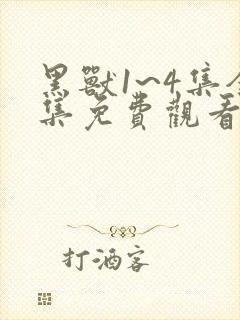 黑獸1~4集全
集免費觀看
打酒客